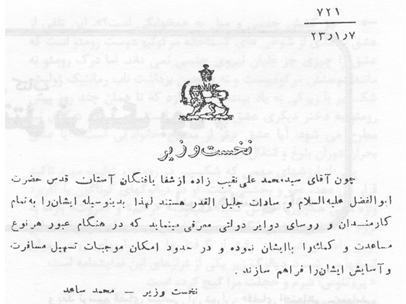 ۷۲۱
۲۳/۱/۷
نخست وزیر
چون آقای سید محمد علی نقیب زاده از شفا یافتگان آستان قدس حضرت
ابوالفضل علیه‌السلام و سادات جلیل القدر هستند لهذا بدینوسیله ایشان را به تمام
کارمندان و روسای دوایر دولتی معرفی مینماید که در هنگام عبور هر نوع
مساعدت و کمک را با ایشان نموده و در حدود امکان موجبات تسهیل مسافرت
و آسایش ایشان را فراهم سازند .
نخست وزیر – محمد ساعد